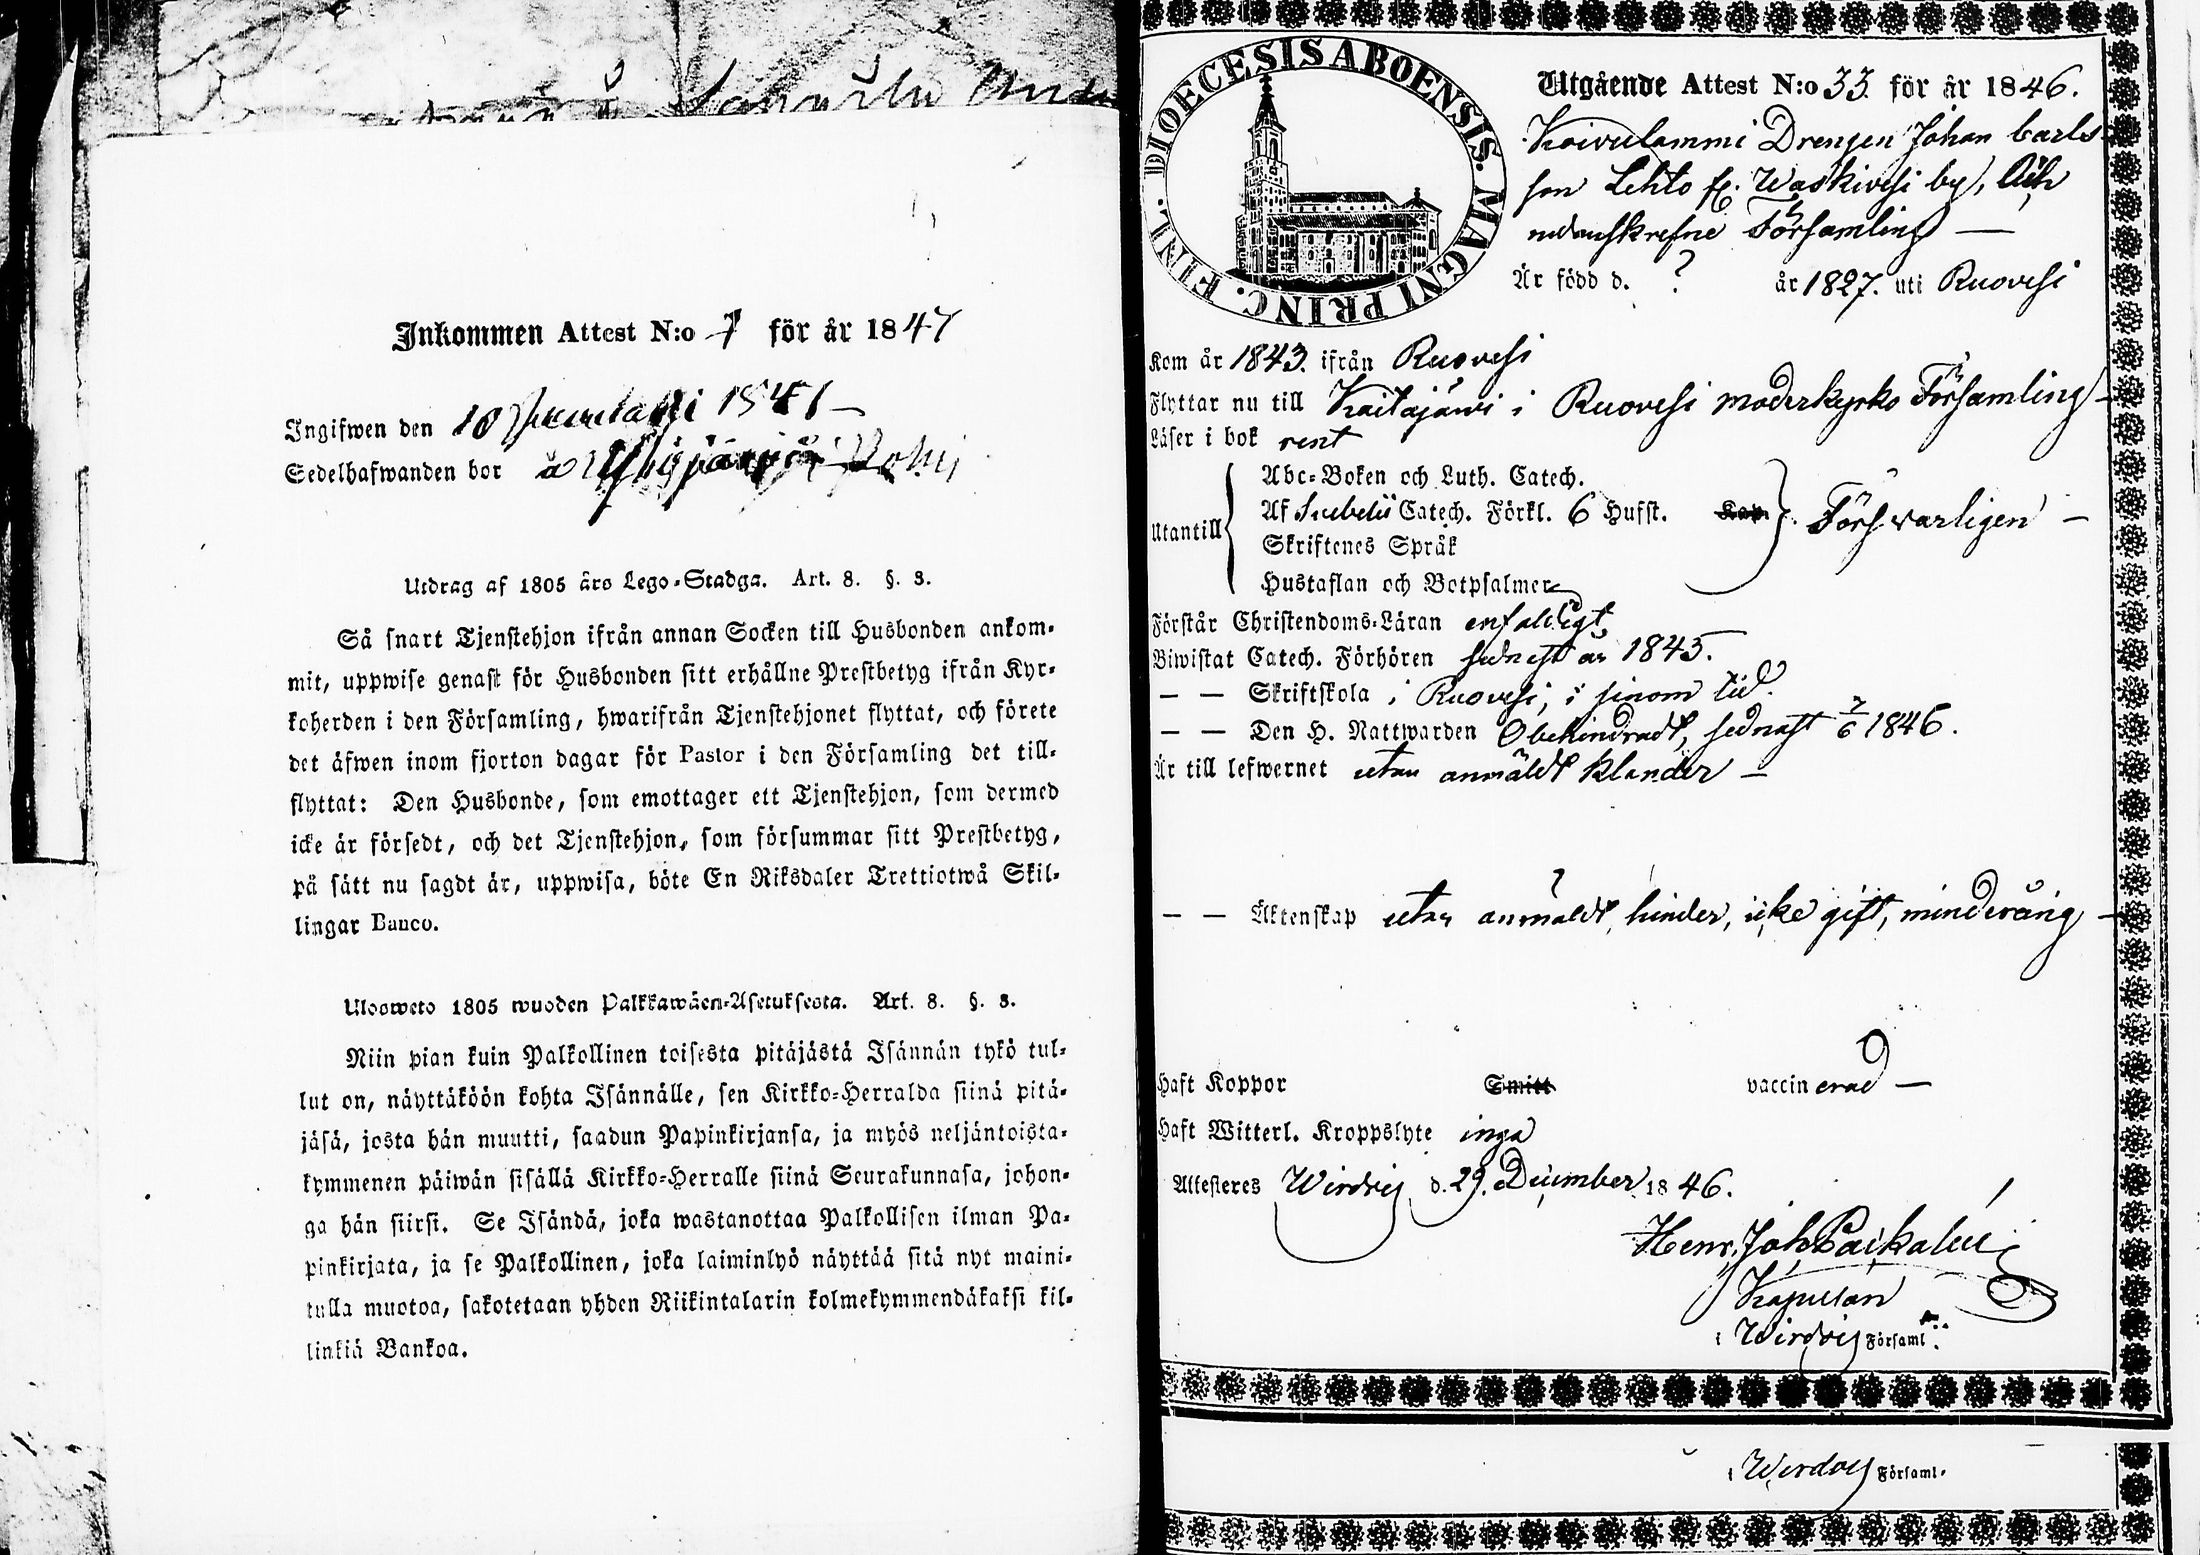 Inkommen Attest N:o 7 för år 1847
Ingifwen den 10
Sedelhafwanden bor å
Utdrag af 1805 års Lego-Stadga. Art. 8. §. 3.
Så snart Tjenstehjon ifrån annan Socken till Husbonden ankom-
mit, uppwise genast för Husbonden sitt erhållne Prestbetyg ifrån Kyr-
koherden i den Församling, hwarifrån Tjenstehjonet flyttat, och förete
det äfwen inom fjorton dagar för Pastor i den Församling det till-
flyttat: Den Husbonde, som emottager ett Tjenstehjon, som dermed
icke är försedt, och det Tjenstehjon, som försummar sitt Prestbetyg,
på sätt nu sagdt är, uppwisa, böte En Riksdaler Trettiotwå Skil-
lingar Banco.
Ulosweto 1805 wuoden Palkkawäen-Asetuksesta. Art. 8. §. 3.
Niin pian kuin Palkollinen toisesta pitäjästä Isännän tykö tul-
lut on, näyttäköön kohta Isännälle, sen Kirkko-Herralda siinä pitä-
jäsä, josta hän muutti, saadun Papinkirjansa, ja myös neljäntoista-
kymmenen päiwän sisällä Kirkko-Herralle siinä Seurakunnasa, johon-
ga hän siirsi. Se Isändä, joka wastanottaa Palkollisen ilman Pa-
pinkirjata, ja se Palkollinen, joka laiminlyö näyttää sitä nyt maini-
tulla muotoa, sakotetaan yhden Riikintalarin kolmekymmendäkaksi kil-
linkiä Bankoa.
DIOECESIS ABOENSIS. MAGNI PRINC. FINL.
Utgående Attest N:o 33 för år 1846.
Koivulammi Drengen Johan Carls-
son Lehto fr. Waskivesi by,
Församling —
Är född d. ? år 1827. uti Ruovesi
Kom år 1843. ifrån Ruovesi
Flyttar nu till Kaitajärvi i Ruovesi moderkyrko Församling —
Läser i bok rent
Utantill
Abc-Boken och Luth. Catech.
Af Svebelii Catech. Förkl. 6 Hufst. Kap.
Skriftenes Språk
Hustaflan och Botpsalmer
Försvarligen —
Förstår Christendoms-Läran enfaldigt
Biwistat Catech. Förhören sednast år 1845.
— — Skriftskola i Ruovesi, i sinom tid.
— — Den H. Nattwarden Obehindradt, sednast 7/6 1846.
Är till lefwernet utan anmäldt klander —
— — Äktenskap utan anmäldt hinder, icke gift, minderårig —
Haft Koppor Smitt vaccinerad —
Haft Witterl. Kroppslyte inga
Attesteres Wirdois d. 29. December 1846.
Henr. Joh.
Kapellan
i Wirdois Församl.
i Wirdois Församl.